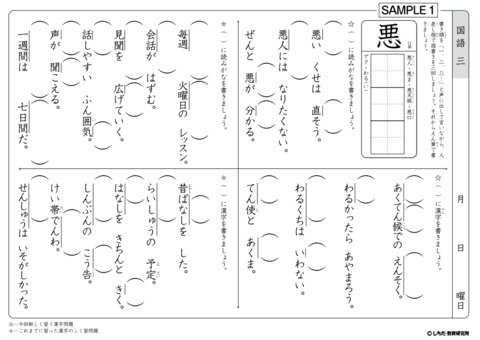 SAMPLE 1
国語 三
月 日 曜日
悪
書き順を「一、二、三…」と声に出して言いながら、人差し指で指書きを三回しましょう。それからえん筆で書きましょう。
アク・わる（い）
悪人・悪ま・悪天候・悪口
☆（ ）に読みがなを書きましょう。
悪い くせは 直そう。
悪人には なりたくない。
ぜんと 悪が 分かる。
★（ ）に読みがなを書きましょう。
毎週 火曜日の レッスン。
会話が はずむ。
見聞を 広げていく。
話しやすい ふん囲気。
声が 聞こえる。
一週間は 七日間だ。
☆（ ）に漢字を書きましょう。
あくてん候での えんそく。
わるかったら あやまろう。
わるくちは いわない。
てん使と あくま。
★（ ）に漢字を書きましょう。
昔ばなしを した。
らいしゅうの 予定。
はなしを きちんと きく。
しんぶんの こう告。
けい帯でんわ。
せんしゅうは いそがしかった。
☆…今回新しく習う漢字問題
★…これまでに習った漢字のふく習問題
©しちだ・教育研究所